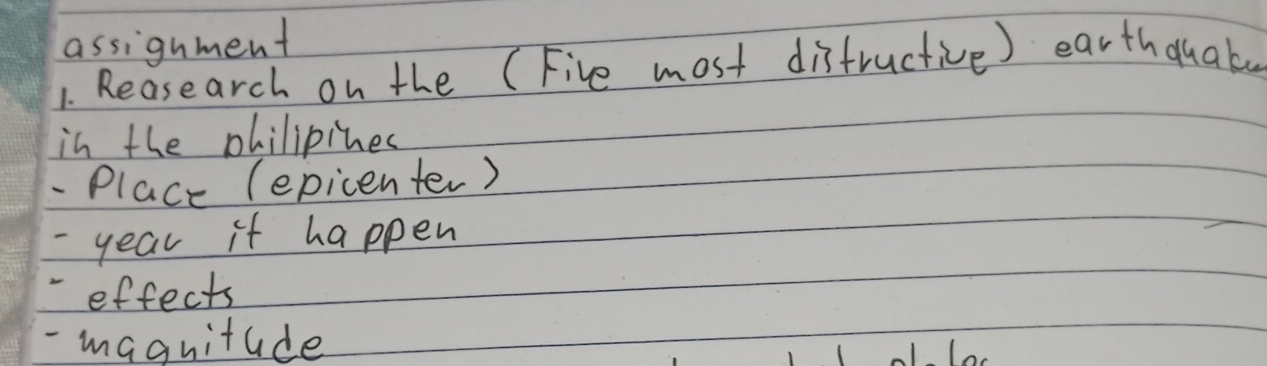 assignment
1. Reasearch on the (Five most distructive) earthquake
in the philipines
- Place (epicenter)
- year it happen
- effects
- magnitude